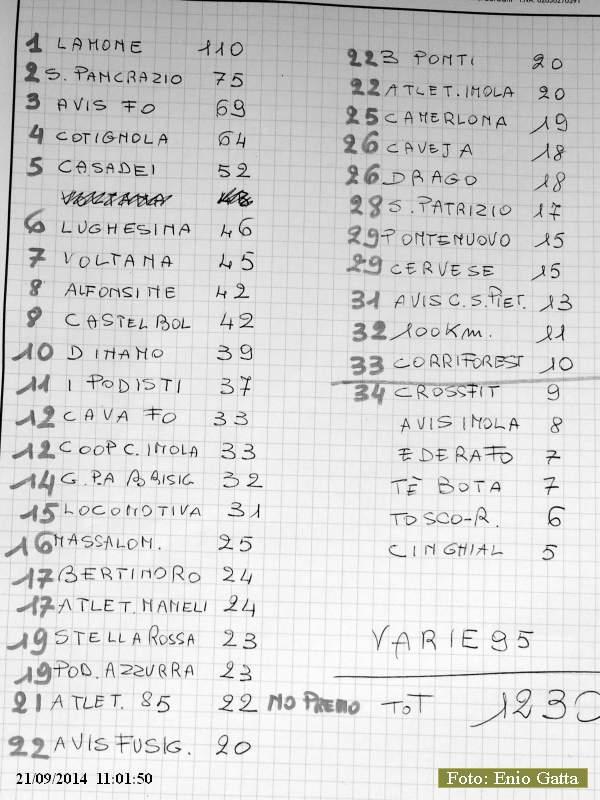 1 LAMONE 110
2 S. PANCRAZIO 75
3 AVIS FO 69
4 COTIGNOLA 64
5 CASADEI 52
6 LUGHESINA 46
7 VOLTANA 45
8 ALFONSINE 42
8 CASTEL BOL 42
10 DINAMO 39
11 I PODISTI 37
12 CAVA FO 33
12 COOP C. IMOLA 33
14 G.P.A BRISIG 32
15 LOCOMOTIVA 31
16 MASSALOM. 25
17 BERTINORO 24
17 ATLET. MANELI 24
19 STELLA ROSSA 23
19 POD. AZZURRA 23
21 ATLET. 85 22 NO PREMO
22 AVIS FUSIG. 20
22 3 PONTI 20
22 ATLET. IMOLA 20
25 CAMERLONA 19
26 CAVEJA 18
26 DRAGO 18
28 S. PATRIZIO 17
29 PONTENUOVO 15
29 CERVESE 15
31 AVIS C. S. PIET. 13
32 100 KM. 11
33 CORRIFOREST 10
34 CROSSFIT 9
AVIS IMOLA 8
EDERA FO 7
TÈ BOTA 7
TOSCO-R. 6
CINGHIAL 5
VARIE 95
TOT 1230
21/09/2014 11:01:50
Foto: Enio Gatta